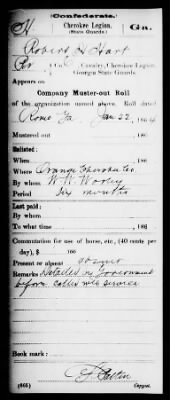 (Confederate.)
H Cherokee Legion. Ga.
(State Guards.)
Robert H Hart
Pvt Co. , Cavalry, Cherokee Legion
Georgia State Guards.
Appears on
Company Muster-out Roll
of the organization named above. Roll dated
Rome Ga Jan 22, 1864
Mustered out 186
Enlisted:
When 186
Where Orange Cherokee Co.
By whom W. W.
Period Six months
Last paid:
By whom
To what time , 186
Commutation for use of horse, etc., (40 cents per
day), $ 100
Present or absent
Remarks Detailed in Government
before called into service
(865) Copyist.